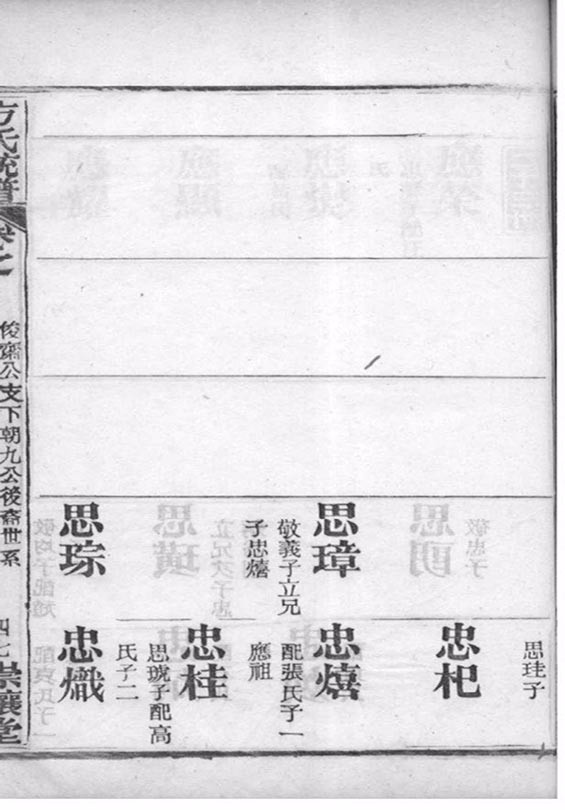 思璋
敬義子立兄
子思熺
思琮
思珪子
忠杞
忠熺
配張氏子一
應祖
忠桂
思琥子配高
氏子二
忠熾
方氏統譜
卷之
俊齋公支下朝九公後裔世系
四七
崇讓堂